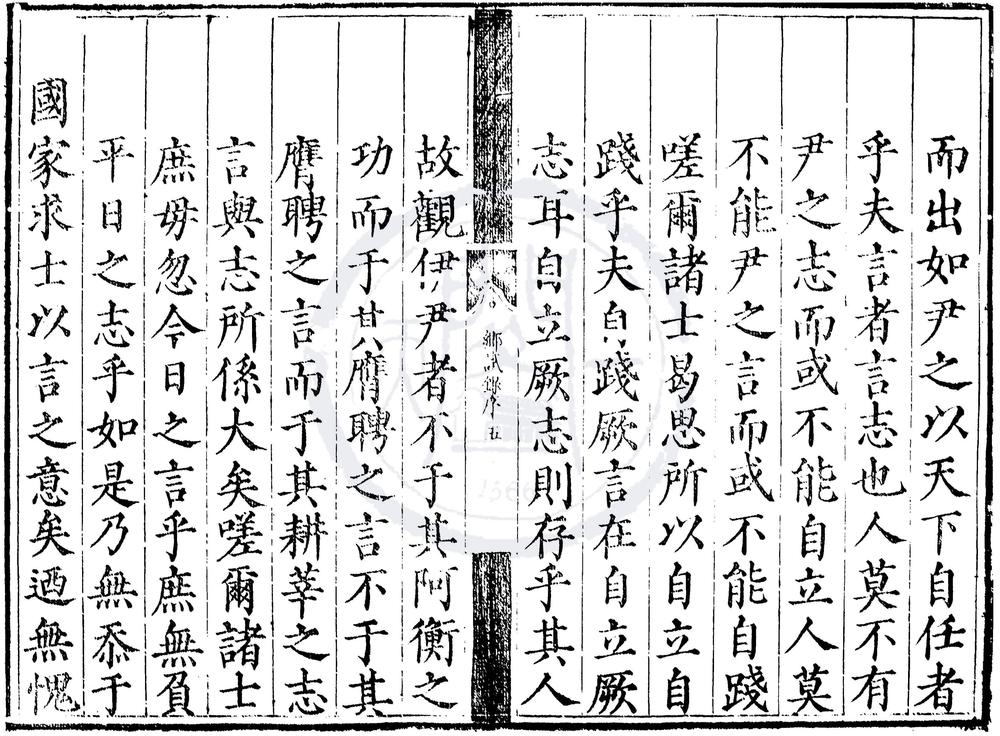 而出如尹之以天下自任者
乎夫言者言志也人莫不有
尹之志而或不能自立人莫
不能尹之言而或不能自踐
嗟爾諸士曷思所以自立自
踐乎夫自踐厥言在自立厥
志耳自立厥志則存乎其人
鄉試錄序 五
故觀伊尹者不于其阿衡之
功而于其膺聘之言不于其
膺聘之言而于其耕莘之志
言與志所係大矣嗟爾諸士
庶毋忽今日之言乎庶無負
平日之志乎如是乃無忝于
國家求士以言之意矣迺無愧